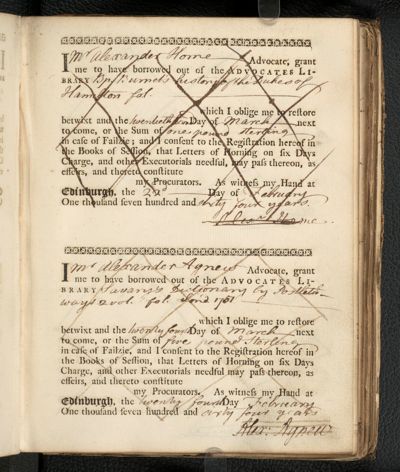 I Mr Alexander Home Advocate, grant
me to have borrowed out of the ADVOCATES LI-
BRARY Bp Burnets history of the Dukes of
Hamilton fol.
which I oblige me to restore
betwixt and the twentieth Day of March next
to come, or the Sum of one pound sterling
in case of Failzie; and I consent to the Registration hereof in
the Books of Session, that Letters of Horning on six Days
Charge, and other Executorials needful, may pass thereon, as
effeirs, and thereto constitute
my Procurators. As witness my Hand at
Edinburgh, the 22d Day of February
One thousand seven hundred and sixty four years.
Home
I Mr Alexander Agnew Advocate, grant
me to have borrowed out of the ADVOCATES LI-
BRARY Savary's Dictionary by Postleth-
ways 2 vol. fol. Lond 1751
which I oblige me to restore
betwixt and the twenty four Day of March next
to come, or the Sum of five pound Sterling
in case of Failzie, and I consent to the Registration hereof in
the Books of Session, that Letters of Horning on six Days
Charge, and other Executorials needful may pass thereon, as
effeirs, and thereto constitute
my Procurators. As witness my Hand at
Edinburgh, the twenty fourth Day February
One thousand seven hundred and sixty four years
Alexr. Agnew